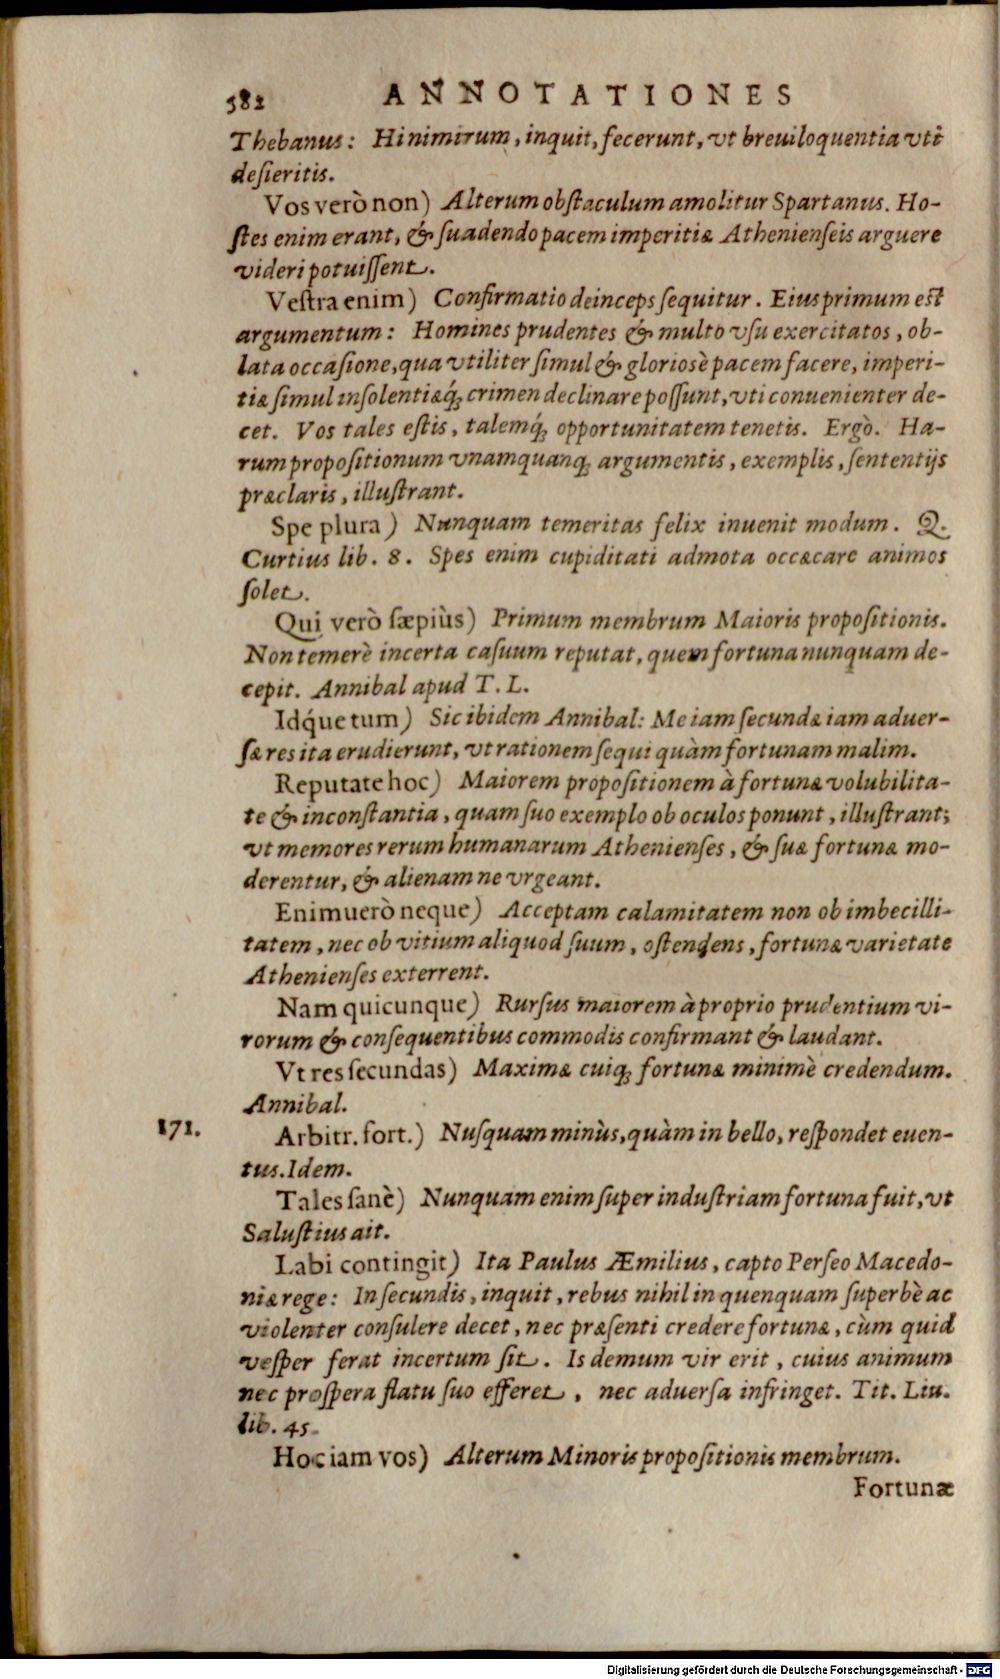 582 ANNOTATIONES
Thebanus: Hi nimirum, inquit, fecerunt, vt breuiloquentia vti
desieritis.
Vos verò non) Alterum obstaculum amolitur Spartanus. Ho-
stes enim erant, & suadendo pacem imperitiæ Athenienseis arguere
videri potuissent.
Vestra enim) Confirmatio deinceps sequitur. Eius primum est
argumentum: Homines prudentes & multo vsu exercitatos, ob-
lata occasione, qua vtiliter simul & gloriosè pacem facere, imperi-
tiæ simul insolentiæq́; crimen declinare possunt, vti conuenienter de-
cet. Vos tales estis, talemq́; opportunitatem tenetis. Ergò. Ha-
rum propositionum vnamquanq; argumentis, exemplis, sententijs
præclaris, illustrant.
Spe plura) Nunquam temeritas felix inuenit modum. Q.
Curtius lib. 8. Spes enim cupiditati admota occæcare animos
solet.
Qui verò sæpiùs) Primum membrum Maioris propositionis.
Non temerè incerta casuum reputat, quem fortuna nunquam de-
cepit. Annibal apud T. L.
Idq́ue tum) Sic ibidem Annibal: Me iam secundæ iam aduer-
sæ res ita erudierunt, vt rationem sequi quàm fortunam malim.
Reputate hoc) Maiorem propositionem à fortunæ volubilita-
te & inconstantia, quam suo exemplo ob oculos ponunt, illustrant;
vt memores rerum humanarum Athenienses, & suæ fortunæ mo-
derentur, & alienam ne vrgeant.
Enimuerò neque) Acceptam calamitatem non ob imbecilli-
tatem, nec ob vitium aliquod suum, ostendens, fortunæ varietate
Athenienses exterrent.
Nam quicunque) Rursus maiorem à proprio prudentium vi-
rorum & consequentibus commodis confirmant & laudant.
Vt res secundas) Maximæ cuiq; fortunæ minimè credendum.
Annibal.
171. Arbitr. fort.) Nusquam minùs, quàm in bello, respondet euen-
tus. Idem.
Tales sanè) Nunquam enim super industriam fortuna fuit, vt
Salustius ait.
Labi contingit) Ita Paulus Æmilius, capto Perseo Macedo-
niæ rege: In secundis, inquit, rebus nihil in quenquam superbè ac
violenter consulere decet, nec præsenti credere fortunæ, cùm quid
vesper ferat incertum sit. Is demum vir erit, cuius animum
nec prospera flatu suo efferet, nec aduersa infringet. Tit. Liu.
lib. 45.
Hoc iam vos) Alterum Minoris propositionis membrum.
Fortunæ
Digitalisierung gefördert durch die Deutsche Forschungsgemeinschaft - DFG